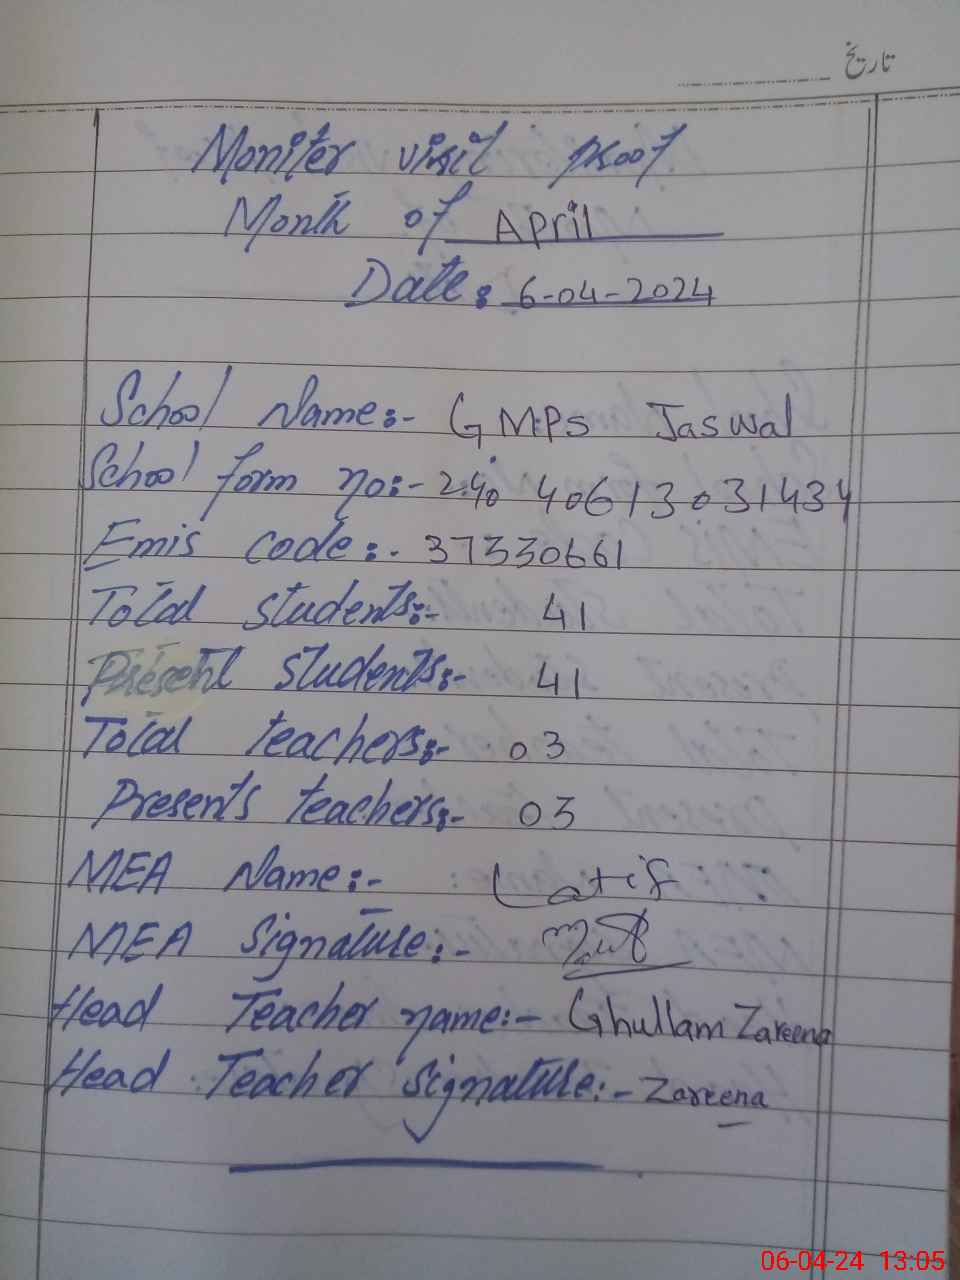 تاریخ
Moniter visit proof
Month of April
Date: 6-04-2024
School Name:- GMPS Jaswal
School form no:- 40613031434
Emis code:- 37330661
Total students:- 41
Present students:- 41
Total teachers:- 03
Presents teachers:- 03
MEA Name:- Latif
MEA Signature:-
Head Teacher name:- Ghullam Zareena
Head Teacher Signature:- Zareena
06-04-24 13:05